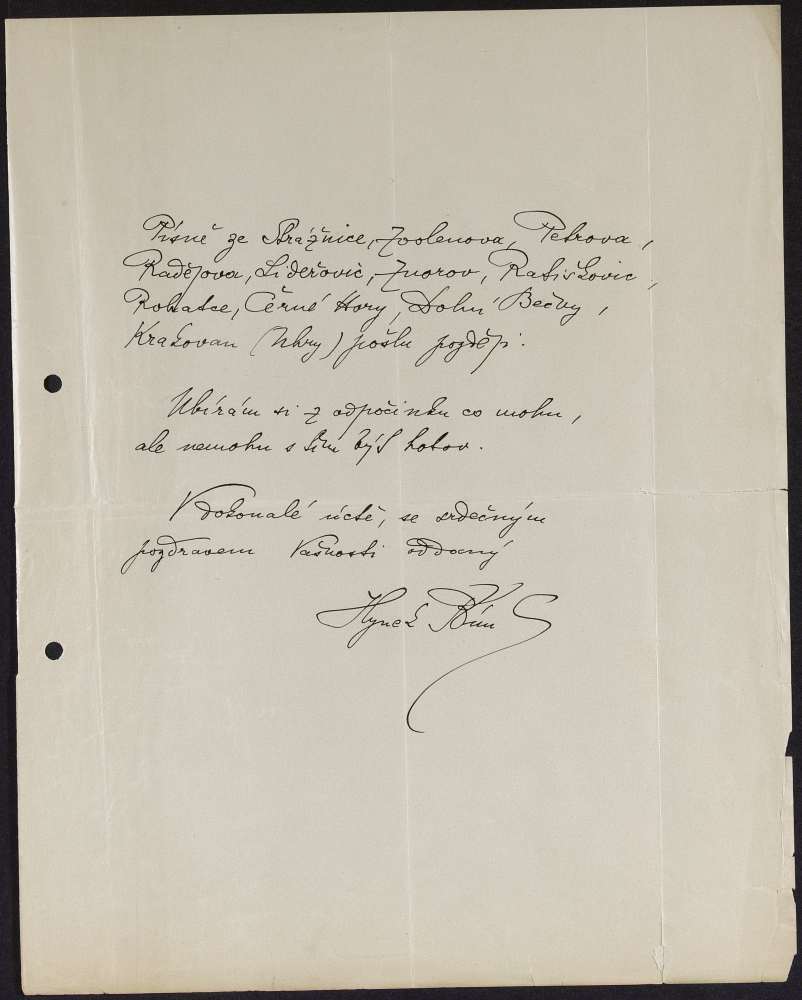 Písně ze Strážnice, Zvolenova, Petrova,
Radějova, Lideřovic, Znorov, Ratiškovic,
Rohatce, Černé Hory, Dolní Bečvy,
Krakovan (Uhry) pošlu později.
Ubírám si z odpočinku co mohu,
ale nemohu s tím býť hotov.
V dokonalé úctě, se srdečným
pozdravem Vašnosti oddaný
Hynek Bím